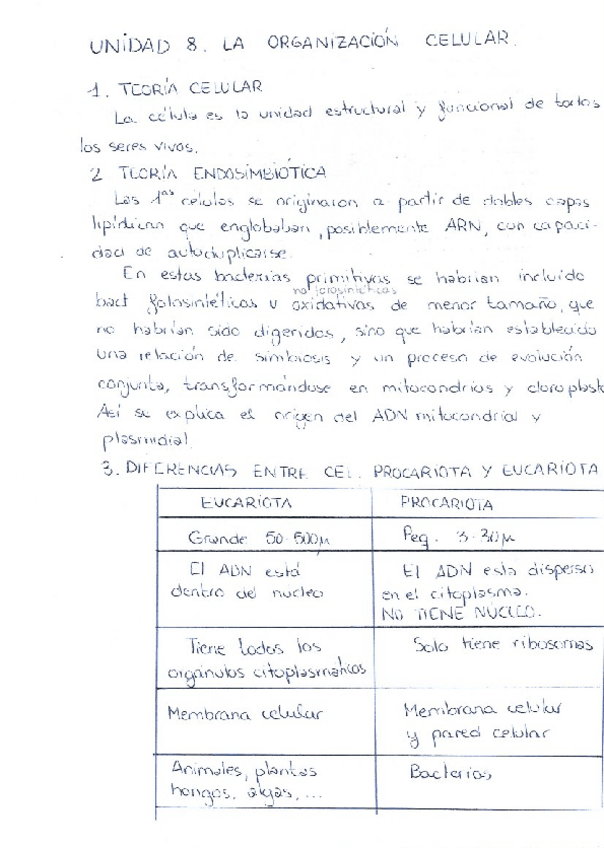 UNIDAD 8. LA ORGANIZACIÓN CELULAR.
1. TEORÍA CELULAR
La célula es la unidad estructural y funcional de todos
los seres vivos.
2 TEORÍA ENDOSIMBIÓTICA
Las 1ᵃˢ células se originaron a partir de dobles capas
lipídicas que englobaban, posiblemente ARN, con capaci-
dad de autoduplicarse.
En estas bacterias primitivas se habrían incluido
no fotosintéticas
bact fotosintéticas y oxidativas de menor tamaño, que
no habrían sido digeridas, sino que habrían establecido
una relación de simbiosis y un proceso de evolución
conjunta, transformándose en mitocondrias y cloroplast
Así se explica el origen del ADN mitocondrial y
plasmidial.
3. DIFERENCIAS ENTRE CEL. PROCARIOTA Y EUCARIOTA
EUCARIOTA PROCARIOTA
Grande 50-500μ Peq. 3-30μ
El ADN está El ADN esta disperso
dentro del nucleo en el citoplasma.
NO TIENE NÚCLEO.
Tiene todos los Solo tiene ribosomas
orgánulos citoplasmáticos
Membrana celular Membrana celular
y pared celular
Animales, plantas Bacterias
hongos, algas, ...